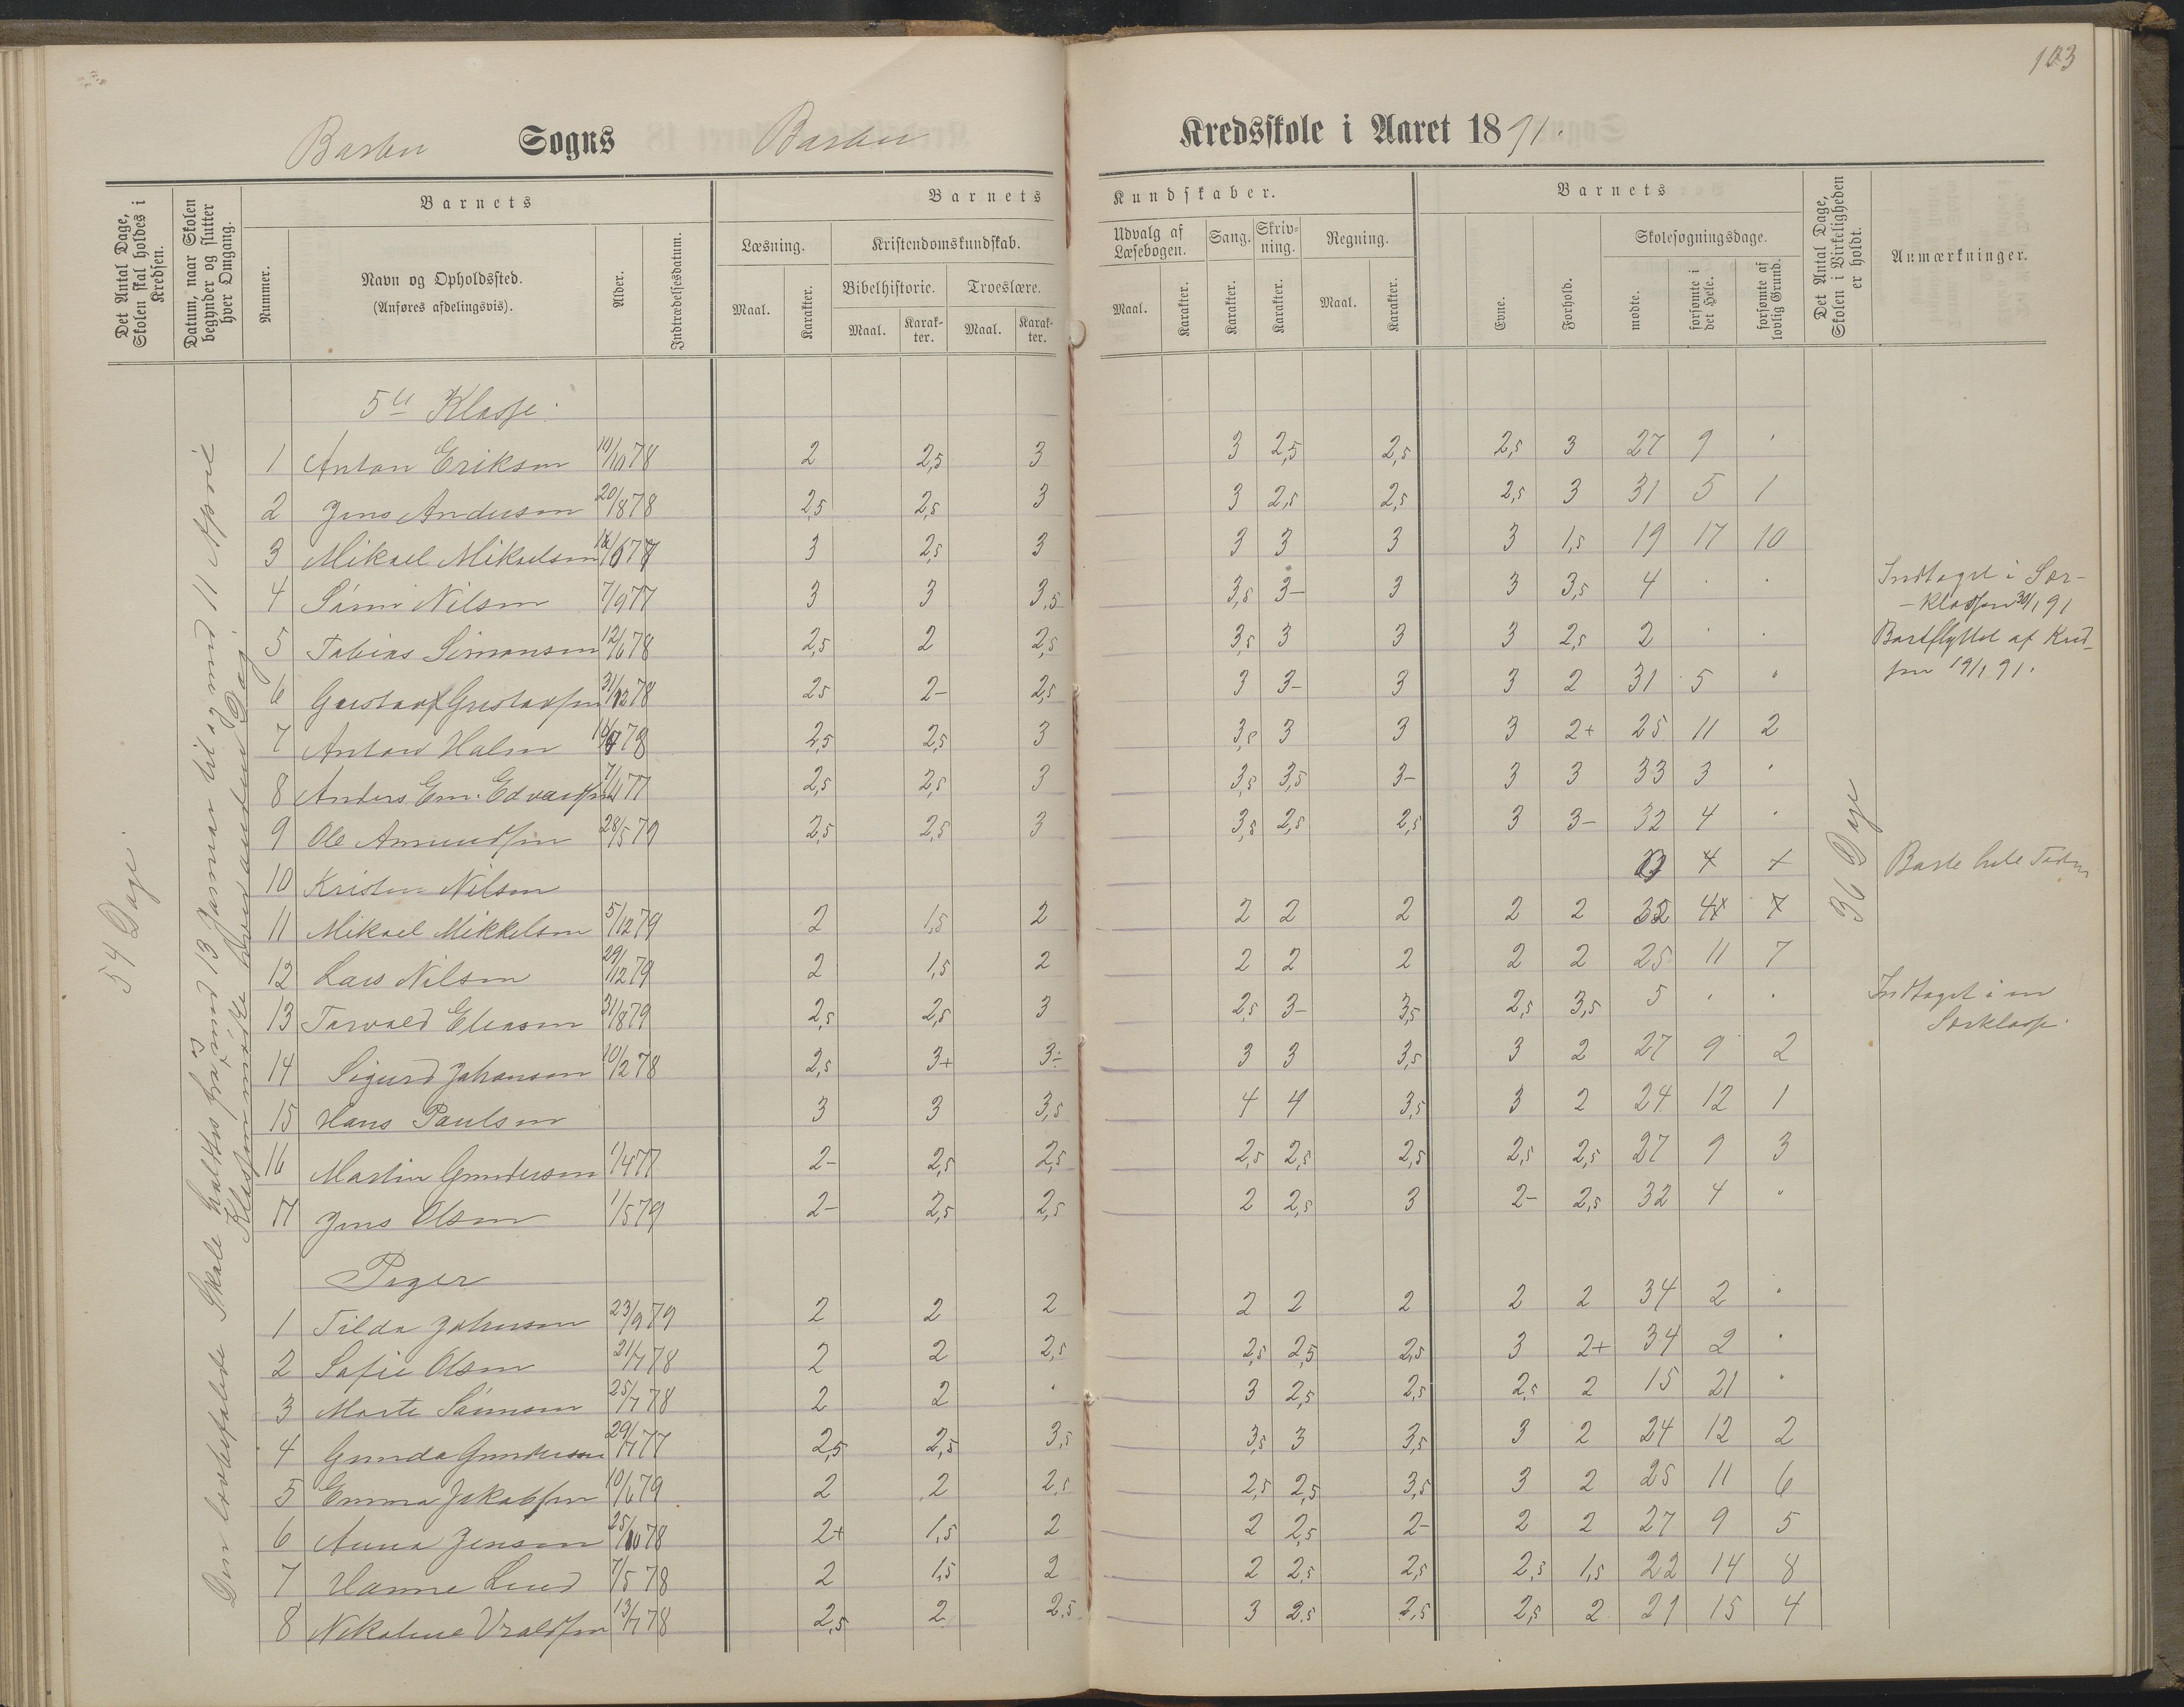 103
Barbu Sogns Barbu Kredsskole i Aaret 1891.
Det Antal Dage, Skolen skal holdes i Kredsen.
Datum, naar Skolen begynder og slutter hver Omgang.
Barnets
Nummer.
Navn og Opholdssted.
(Anføres afdelingsvis).
Alder.
Indtrædelsesdatum.
Barnets Kundskaber.
Læsning.
Maal. Karakter.
Kristendomskundskab.
Bibelhistorie. Troeslære.
Maal. Karakter. Maal. Karakter.
Udvalg af Læsebogen.
Maal. Karakter.
Sang. Karakter.
Skrivning. Karakter.
Regning.
Maal. Karakter.
Barnets
Evne. Forhold.
Skolesøgningsdage.
mødte. forsømte i det Hele. forsømte af lovlig Grund.
Det Antal Dage, Skolen i Virkeligheden er holdt.
Anmærkninger.
54 Dage.
Den lovbefalede Skole holdtes fra 13 Januar til og med 11 April
Klassen mødte hver anden Dag.
36 Dage
5te Klasse.
1 Anton Erikson 10/10 78 2 2,5 3 3 2,5 2,5 2,5 3 27 9 .
2 Jens Anderson 20/8 78 2,5 2,5 3 3 2,5 2,5 2,5 3 31 5 1
3 Mikael Mikaelson 3 2,5 3 3 3 3 3 1,5 19 17 10
4 Nilson 7/9 77 3 3 3,5 3,5 3- 3 3 3,5 4 . . Indtaget i Sær-
-klassen 30/1 91
5 Tobias Simonsen 12/6 78 2,5 2 2,5 3,5 3 3 3 2,5 2 . . Bortflyttet af Kred-
sen 19/1 91.
6 Gustav Gustavsen 31/12 78 2,5 2- 2,5 3 3- 3 3 2 31 5 .
7 Anton Holm 2,5 2,5 3 3,5 3 3 3 2+ 25 11 2
8 Anders Em. Edvardsen 2,5 2,5 3 3,5 3,5 3- 3 3 33 3 .
9 Ole Amundsen 28/5 79 2,5 2,5 3 3,5 2,5 2,5 3 3- 32 4 .
10 Kristen Nilsen Borte hele Tiden
11 Mikael Mikkelsen 5/12 79 2 1,5 2 2 2 2 2 2 32
12 Lars Nilson 29/12 79 2 1,5 2 2 2 2 2 2 25 11 7
13 Torvald Eliason 31/8 79 2,5 2,5 3 2,5 3- 3,5 2,5 3,5 5 . . Indtaget i en
Særklasse.
14 Sigurd Johanson 10/2 78 2,5 3+ 3÷ 3 3 3,5 3 2 27 9 2
15 Hans Paulson 3 3 3,5 4 4 3,5 3 2 24 12 1
16 Martin Gunderson 1/4 77 2- 2,5 2,5 2,5 2,5 2,5 2,5 2,5 27 9 3
17 Jens Olson 1/5 79 2- 2,5 2,5 2 2,5 3 2- 2,5 32 4 .
Piger
1 Tilda Johnson 23/9 79 2 2 2 2 2 2 2 2 34 2 .
2 Sofie Olson 21/7 78 2 2 2,5 2,5 2,5 2,5 3 2+ 34 2 .
3 Marte 25/7 78 2 2 . 3 2,5 2,5 2,5 2 15 21 .
4 Gunda Gunderson 2,5 2,5 3,5 3,5 3 3,5 3 2 24 12 2
5 Emma Jakobsen 10/6 79 2 2 2,5 2,5 2,5 3,5 3 2 25 11 6
6 Anna Jenson 25/10 78 2+ 1,5 2 2 2,5 2- 2 2 27 9 5
7 Hanne Lund 7/5 78 2 1,5 2 2 2,5 2,5 2,5 1,5 22 14 8
8 Nikoline Vraldsen 13/7 78 2,5 2 2,5 3 2,5 2,5 2,5 2 21 15 4